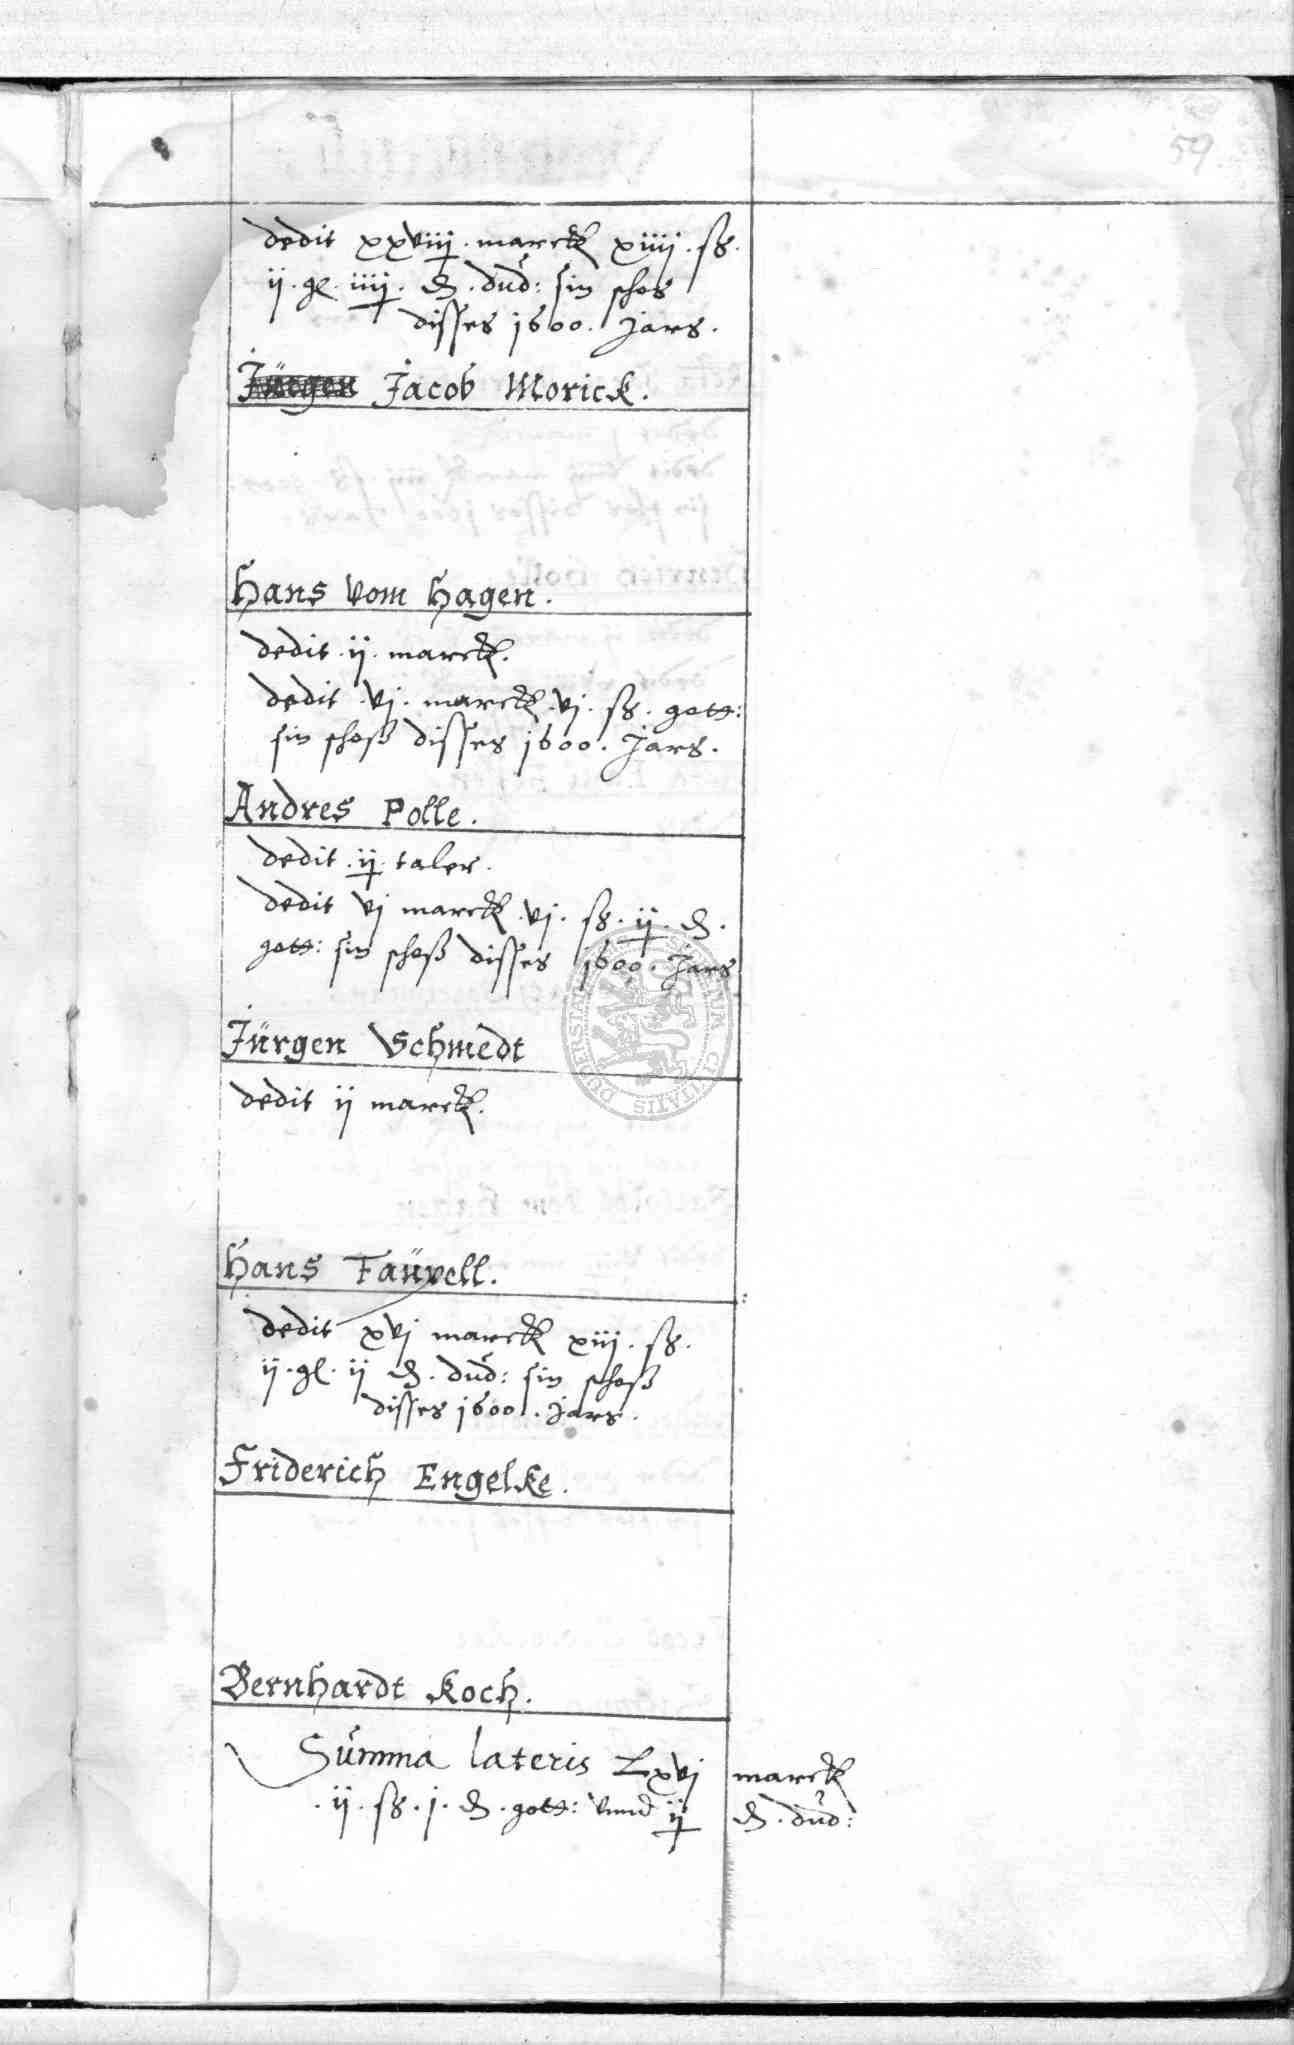 59
dedit xxviij. marck xiiij. ß.
ij. gl. iiij. ₰. dud: sin schos
disses 1600. Jars.
Jürgen Jacob Morick.
Hans vom Hagen.
dedit. ij. marck.
dedit. vj. marck. vj. ß. gott:
sin schoß disses 1600. Jars.
Andres Polle.
dedit. ij. taler.
dedit vj marck. vj. ß. ij. ₰.
gott: sin schoß disses 1600. Jars
Jürgen Schmedt
dedit ij marck.
SIGILLUM CIVITATIS DUDERSTAD
Hans Faürell.
dedit xvj marck xiij. ß.
ij. gl. ij ₰. dud: sin schoß
disses 1600. Jars.
Friderich Engelke.
Bernhardt Koch.
Summa lateris Lxvj marck
. ij. ß. j. ₰. gott: vnnd ij ₰. dud: